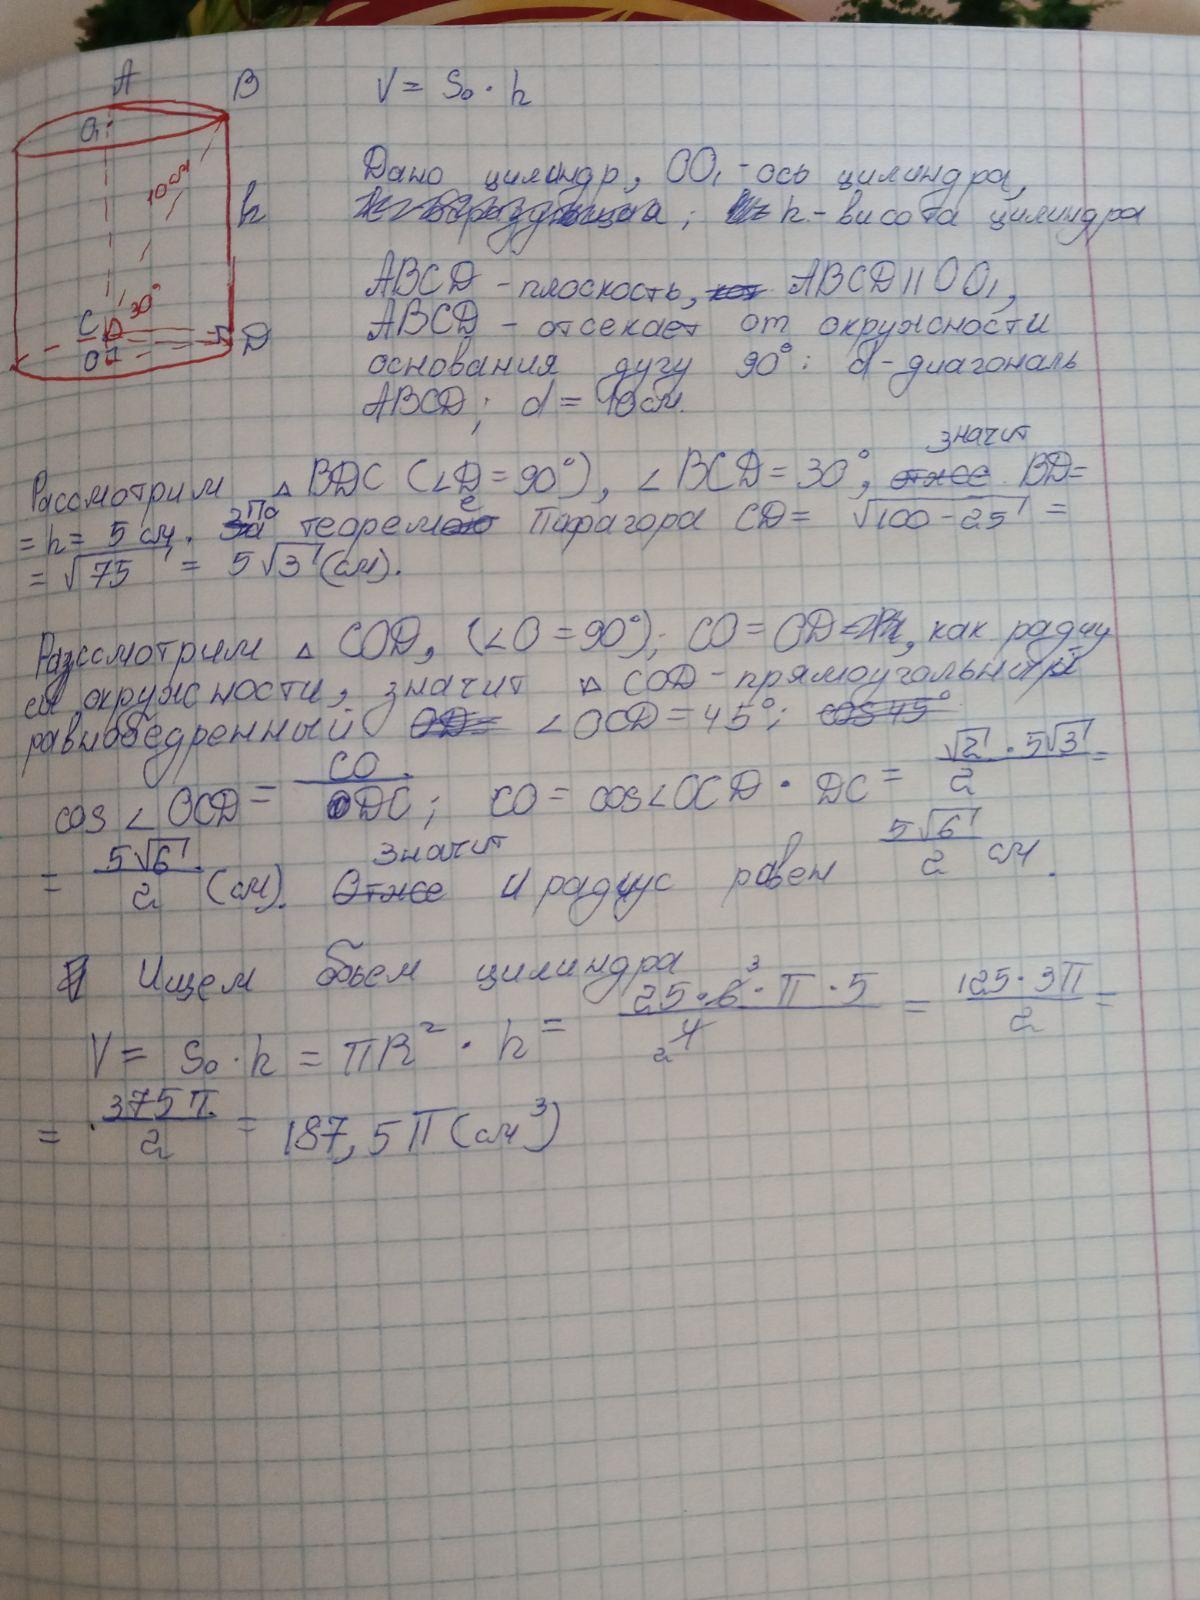 A B
O₁
10см
h
30°
C
O
D
V = Sо · h
Дано цилиндр, OO₁ - ось цилиндра,
h - висота цилиндра
ABCD - плоскость, ABCD || OO₁,
ABCD - отсекает от окружности
основания дугу 90°; d - диагональ
ABCD; d = 10см.
Рассмотрим △ BDC (∠D = 90°), ∠BCD = 30°, значит BD=
= h = 5 см. По теореме Пифагора CD = √100 - 25 =
= √75 = 5√3 (см).
Рассмотрим △ COD, (∠O = 90°); CO = OD, как радиу
сы окружности, значит △ COD - прямоугольный
равнобедренный ∠OCD = 45°;
cos∠OCD = CO/DC; CO = cos∠OCD · DC = √2 · 5√3/2 =
= 5√6/2 (см). значит И радиус равен 5√6/2 см.
Ищем объем цилиндра
V = Sо · h = πR² · h = 25 · 6³ · π · 5/4 2 = 125 · 3π/2 =
= 375π/2 = 187,5π (см³)